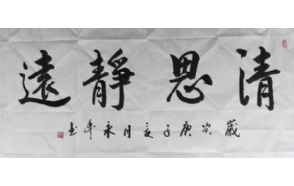 清思靜遠
歲次庚子夏月永年書